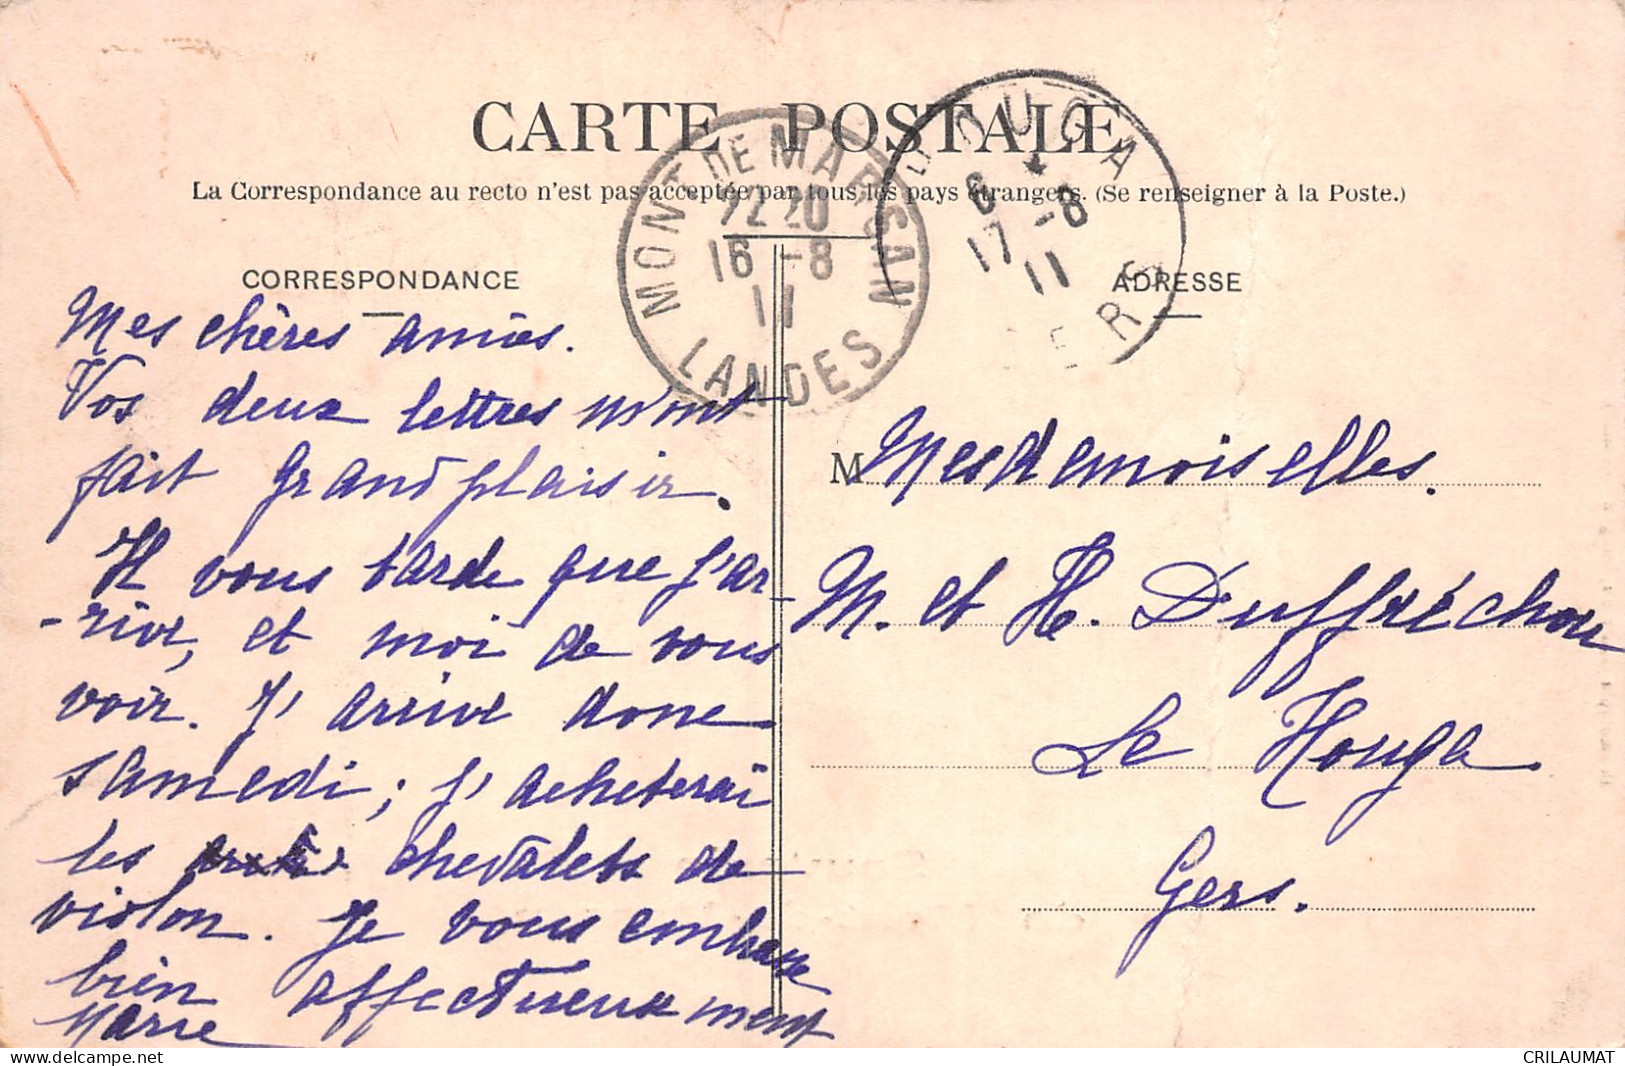 CARTE POSTALE
La Correspondance au recto n'est pas acceptée par tous les pays étrangers. (Se renseigner à la Poste.)
MONT-DE-MARSAN
22 20
16 -8
11
LANDES
HOUGA
6
17 -8
11
GERS
CORRESPONDANCE
Mes chères amies.
Vos deux lettres m'ont
fait grand plaisir.
Il vous tarde que j'ar-
-rive, et moi de vous
voir. J'arrive donc
samedi; j'acheterai
les chevalets de
violon. Je vous embrasse
bien affectueusement
Marie
ADRESSE
M Mesdemoiselles.
M. et H. Duffréchou
Le Houga
Gers.
delcampe.net
CRILAUMAT